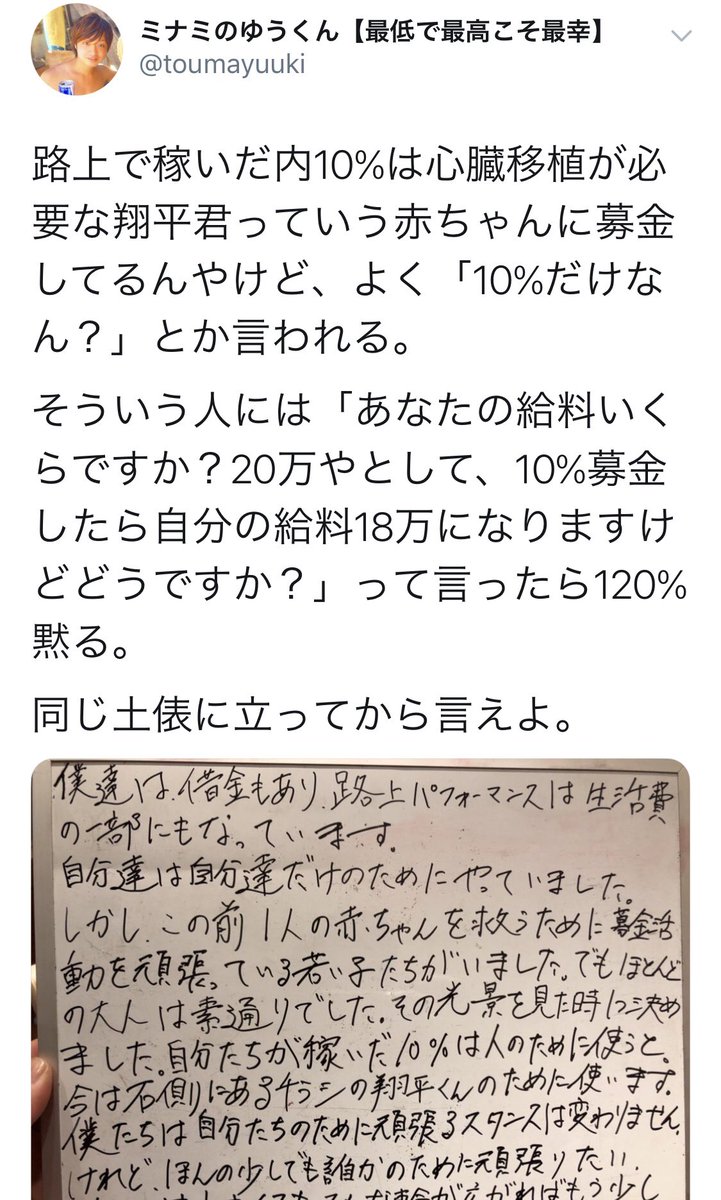 ミナミのゆうくん【最低で最高こそ最幸】
@toumayuuki
路上で稼いだ内10%は心臓移植が必
要な翔平君っていう赤ちゃんに募金
してるんやけど、よく「10%だけな
ん？」とか言われる。
そういう人には「あなたの給料いく
らですか？20万やとして、10%募金
したら自分の給料18万になりますけ
どどうですか？」って言ったら120%
黙る。
同じ土俵に立ってから言えよ。
僕達は、借金もあり、路上パフォーマンスは生活費
の一部にもなっています。
自分達は自分達だけのためにやっていました。
しかし、この前1人の赤ちゃんを救うために募金活
動を頑張っている若い子たちがいました。でもほとんど
の大人は素通りでした。その光景を見た時に決め
ました。自分たちが稼いだ10%は人のために使うと。
今は右側にあるチラシの翔平くんのために使います。
僕たちは自分たちのために頑張るスタンスは変わりません。
けれど、ほんの少しでも誰かのために頑張りたい。